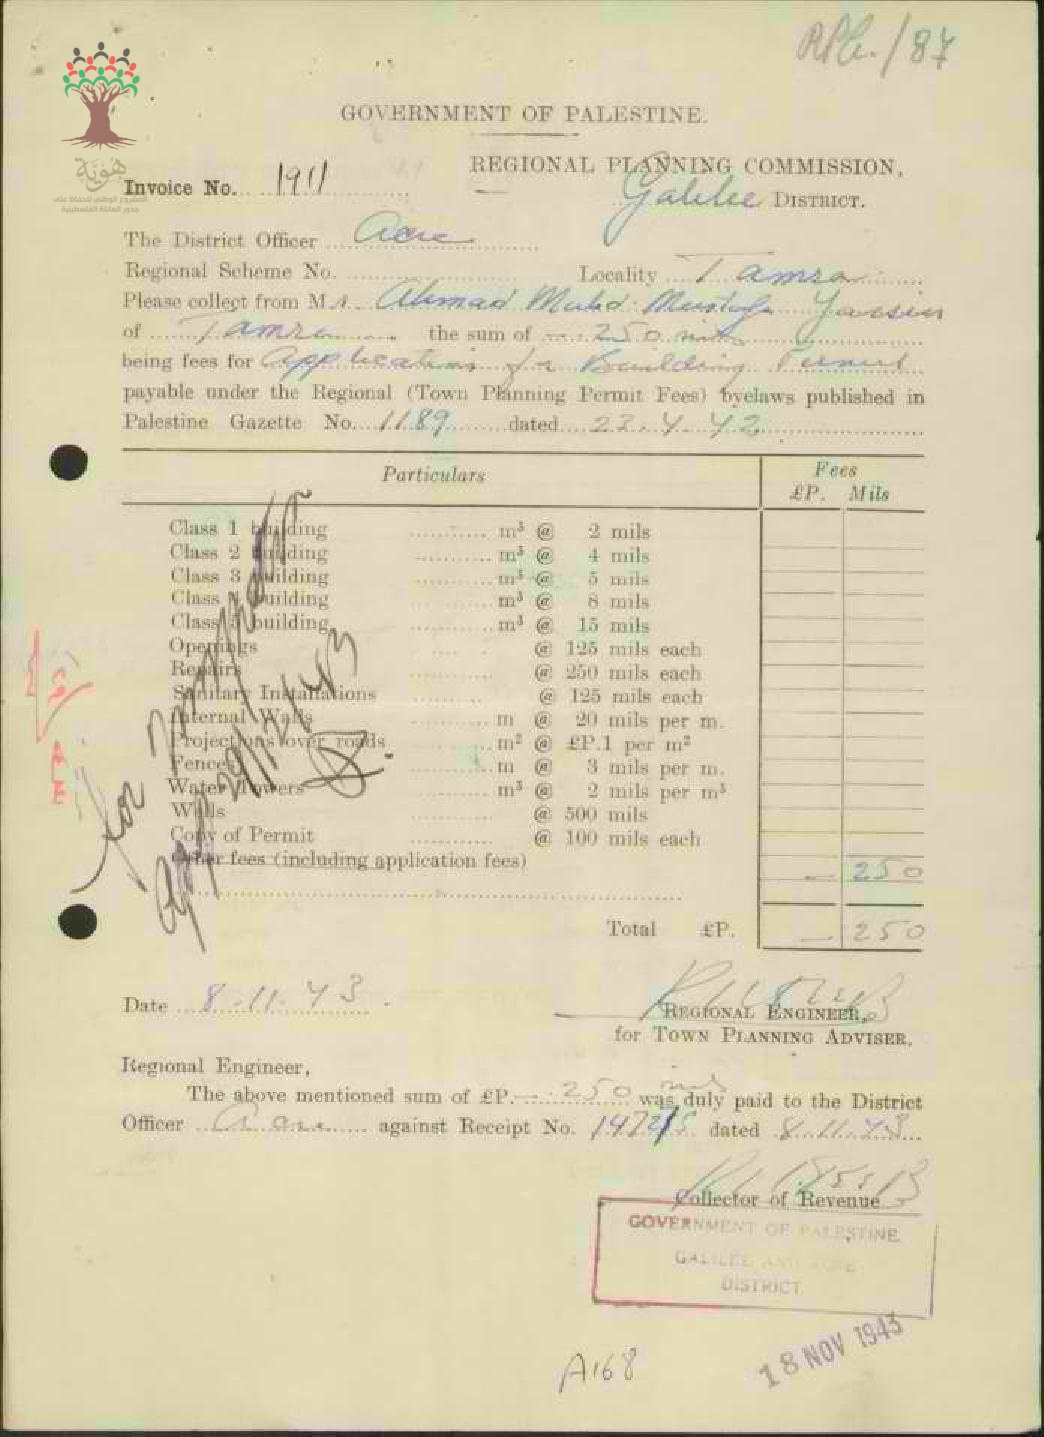 RPC./87
هُويَّة
المشروع الوطني للحفاظ على
جذور العائلة الفلسطينية
GOVERNMENT OF PALESTINE.
REGIONAL PLANNING COMMISSION,
Invoice No. 1911 Galilee DISTRICT.
The District Officer Acre
Regional Scheme No. Locality Tamra
Please collect from M. Ahmad Muhd. Mustafa Yassin
of Tamra the sum of — 250 mils
being fees for Applications for Building Permit
payable under the Regional (Town Planning Permit Fees) byelaws published in
Palestine Gazette No. 1189 dated 23.4.42
Particulars Fees
£P. Mils
Class 1 building m³ @ 2 mils
Class 2 building m³ @ 4 mils
Class 3 building m³ @ 5 mils
Class 4 building m³ @ 8 mils
Class 5 building m³ @ 15 mils
Openings @ 125 mils each
Repairs @ 250 mils each
Sanitary Installations @ 125 mils each
Internal Walls m @ 20 mils per m.
Projections over roads m² @ £P.1 per m²
Fences m @ 3 mils per m.
Water Towers m³ @ 2 mils per m³
Wells @ 500 mils
Copy of Permit @ 100 mils each
Other fees (including application fees) — 250
Total £P. — 250
for
29/12/43
Date 8.11.43.
REGIONAL ENGINEER,
for TOWN PLANNING ADVISER.
Regional Engineer,
The above mentioned sum of £P. — 250 mils was duly paid to the District
Officer Acre against Receipt No. 147215 dated 8.11.43
Collector of Revenue
GOVERNMENT OF PALESTINE
GALILEE AND ACRE
DISTRICT
18 NOV 1943
A168